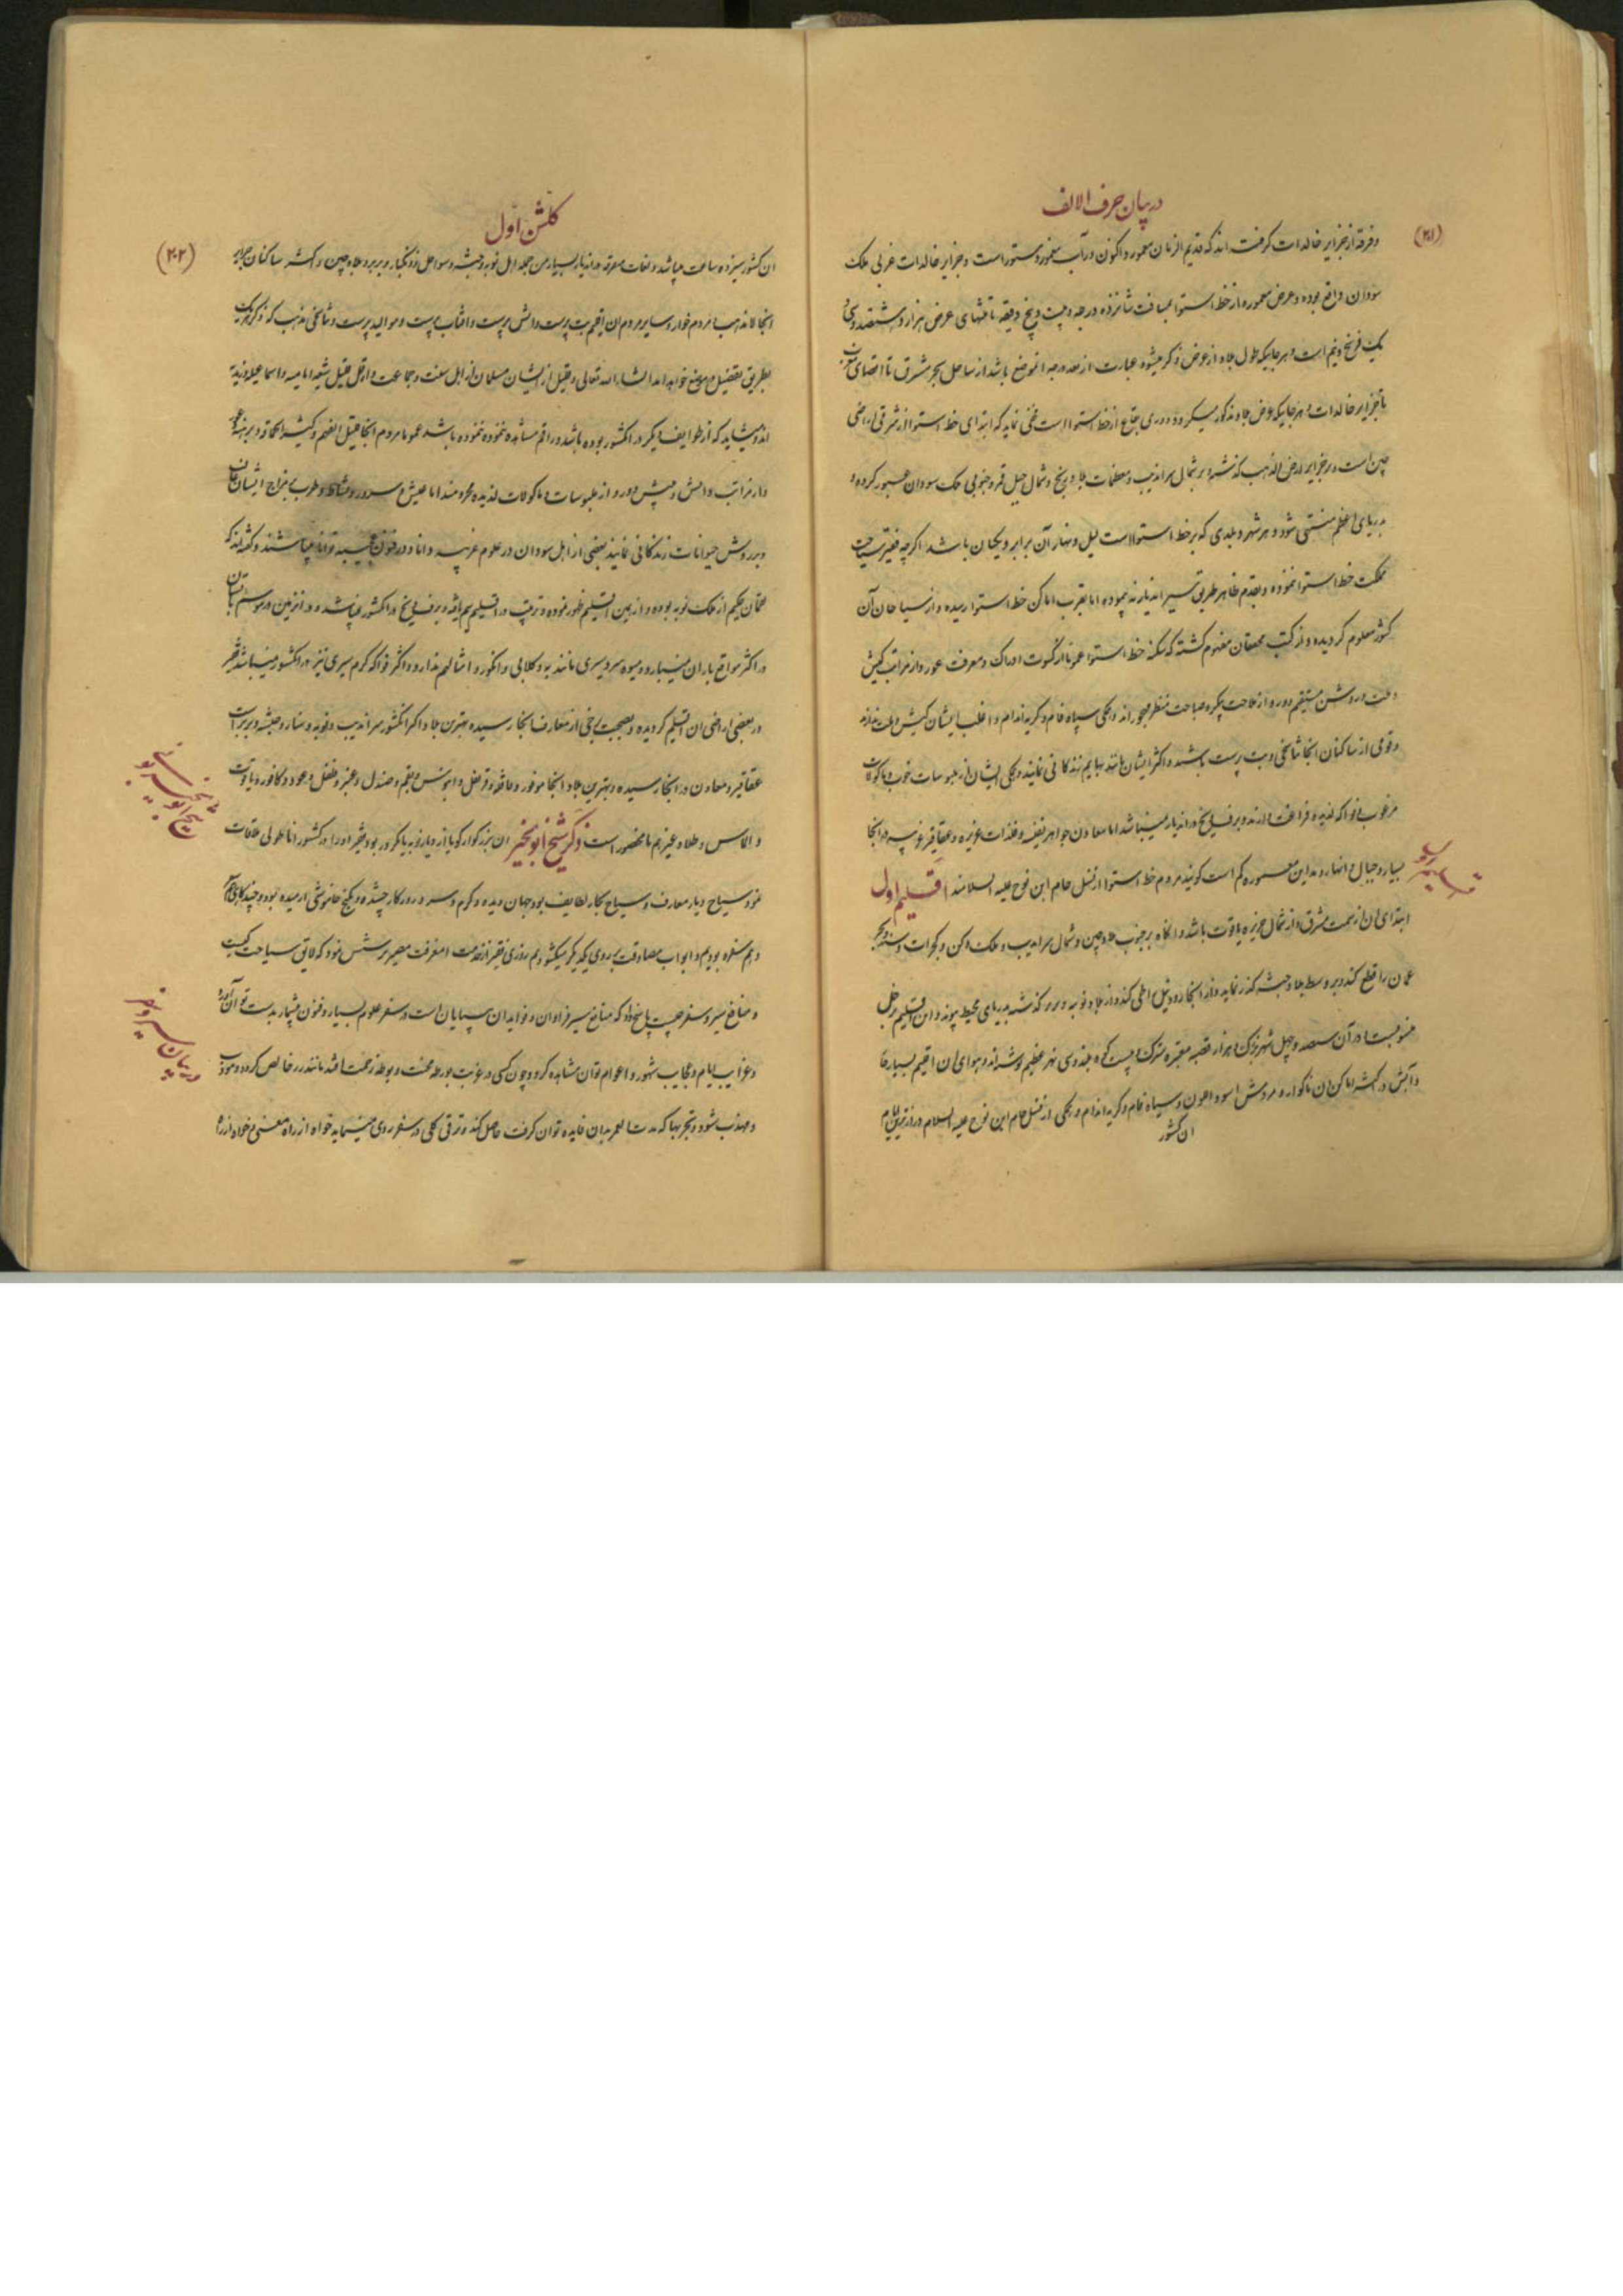 در بیان حرف الالف
(۲۰۱)
و فرقه از جزایر خالدات گرفته اند که قدیم الزمان معمور و اکنون در آب مغمور و مستور است و جزایر خالدات غربی ملک
سودان واقع بوده و عرض معموره از خط استوا بمسافت شانزده درجه و بیست و پنج دقیقه تا منتهای عرض هزار و ششصد و سی و
یک فرسخ و نیم است و هر جاییکه طول بلاد از عرض ذکر میشود عبارت از بعد درجه آنموضع باشد از ساحل بحر مشرق تا اقصای
تا جزایر خالدات و هر جاییکه عرض بلاد مذکور میگردد دوری بقاع از خط استوا است مخفی نماند که ابتدای خط استوا از شرقی اراضی
چین است و بر جزایر ارض الذهب گذشته و بر شمال سراندیب و معظمات بلاد زنج و شمال جبل قمر و جنوبی ملک سودان عبور کرده و
بدریای اعظم منتهی شود و هر شهر و بلدی که بر خط استوا است لیل و نهار آن برابر و یکسان باشد اگرچه فقیر سیاحت
مملکت خط استوا ننموده و بقدم ظاهر طریق سیر اندیار نه پیموده اما بقرب اماکن خط استوا رسیده و از سیاحان آن
کشور معلوم گردیده و از کتب محققان مفهوم گشته که سکنه خط استوا عموما از کسوت ادراک و معرفت عور و از مراتب کیش
و ملت و روشن مستقیم دور و از ملاحت پیکر و صباحت منظر مهجور اند و همگی سیاه فام و کریه اندام و اغلب ایشان کیش و ملت ندارند
و قومی از ساکنان آنجا تناسخی و بت پرست باشند و اکثر ایشان مانند بهایم زندگانی نمایند و همگی ایشان از ملبوسات خوب و ماکولات
مرغوب و فواکه لذیذه فراغت دارند و برف و یخ در اندیار نمیباشد اما معادن جواهر نفیسه و فلذات عزیزه و عقاقیر غریبه در آنجا
بسیار و جبال و انهار و مداین معموره کم است گویند مردم خط استوا از نسل حام ابن نوح علیه السلامند اقلیم اول
ابتدای ان از سمت مشرق و از شمال جزیره یاقوت باشد و انگاه بر جنوب بلاد چین و شمال سراندیب و ملک دکن و گجرات و سند و بحر
عمان را قطع کند و بر وسط بلاد حبشه گذر نماید و از آنجا رود نیل را طی کند و از بلاد نوبه و بربر گذشته بدریای محیط پیوندد و ان اقلیم بزحل
منسوبست در آن سیصد و چهل شهر بزرگ و هزار قصبه معتبره سترک و بیست کوه بلند و سی نهر عظیم نوشته اند و هوای ان اقلیم بسیار حار
و آبش در اکثر اماکن ان ناگوار و مردمش اسود اللون و سیاه فام و کریه اندام و همگی از نسل حام ابن نوح علیه السلام درازترین ایام
ان کشور
گلشن اول
(۲۰۲)
ان کشور سیزده ساعت میباشد و لغات متفرقه در اندیار بسیار من جمله اهل نوبه و حبشه و سواحل و زنگبار و بربر و بلاد چین و اکثر ساکنان جزایر
آنجا لامذهب و مردم خوار و سایر مردم ان اقلیم بت پرست و اتش پرست و افتاب پرست و موالید پرست و تناسخی مذهب که ذکر هر یک
بطریق تفصیل در موضع خواهد امد انشاء الله تعالی و قلیل از ایشان مسلمان از اهل سنت و جماعت و اقل قلیل شیعه امامیه و اسماعیلیه و زیدیه
اند و شاید که از طوایف دیگر در انکشور بوده باشد و راقم مشاهده ننموده باشد عموما مردم آنجا قلیل الفهم و کثیر الحماقه و برهنه
و از مراتب دانش و بینش دور و از ملبوسات و ماکولات لذیذه محرومند اما عیش و سرور و نشاط و طرب بر مزاج ایشان غالب
و بر روش حیوانات زندگانی نمایند بعضی از اهل سودان در علوم غریبه دانا و در فنون عجیبه توانا میباشند و گفته اند که
لقمان حکیم از ملک نوبه بوده و از بین اقلیم ظهور نموده و تربیت در اقلیم سیم یافته و برف و یخ در انکشور نمیباشد و در انزمین در موسم تابستان
در اکثر مواقع باران میبارد و میوه سردسیری مانند به و گلابی و انگور و امثالهم ندارد و اکثر فواکه گرم سیری نیز در انکشور نمیباشد فقیر
در بعضی اراضی ان اقلیم گردیده و بصحبت برخی از معارف آنجا رسیده بهترین بلاد انکشور سراندیب و نوبه و سنار و حبشه و بربر است
عقاقیر و معادن در آنجا رسیده و بهترین بلاد آنجا موفور و فلفل و قرنفل و ابنوس و بقم و صندل و عنبر و فلفل و عود و کافور و یاقوت
و الماس و طلا و غیرهم نامحصور است ذکر شیخ ابوالخیر ان بزرگوار گویا از دیار نوبه یا تکرور بود و فقیر او را در کشور اناطولی ملاقات
نمود سیاح دیار معارف و سیاح بحار لطایف بود جهان دیده و گرم و سرد روزگار چشیده و بکنج خاموشی ارمیده بود و چند گاهی با هم
و هم سفره بودیم و ابواب مصادقت بر روی یکدیگر میگشودیم روزی فقیر از خدمت ان معرفت مصیر پرسش نمود که لایق سیاحت کیست
و منافع سیر و سفر چیست پاسخ داد که منافع سیر فراوان و فواید ان بی پایان است و در سفر علوم بسیار و فنون بیشمار بدست توان آورد
و غرایب ایام و عجایب شهور و اعوام توان مشاهده کرد و چون کسی در غربت بورطه محنت و بوطه زحمت افتد مانند زر خالص گردد و مهذب
و مهذب شود و تجربها که مدت العمر بدان فایده توان گرفت حاصل کند و ترقی کلی در سفر روی مینماید خواه از راه معنی خواه از راه
شیخ ابوالخیر
در بیان سیر و سفر